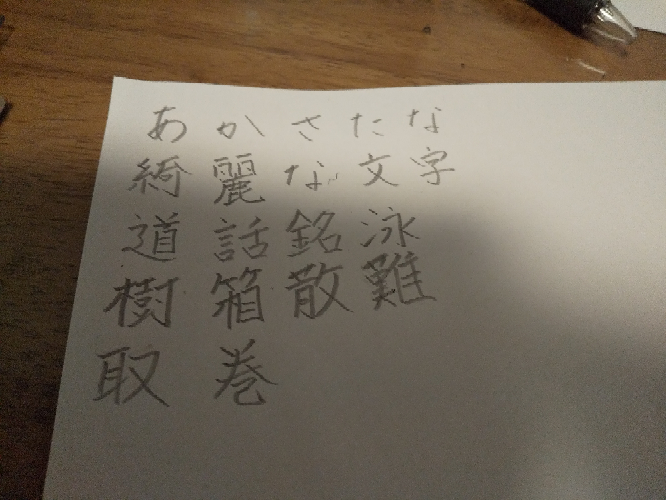 あかさたな
綺麗な文字
道話銘泳
樹箱散難
取巻